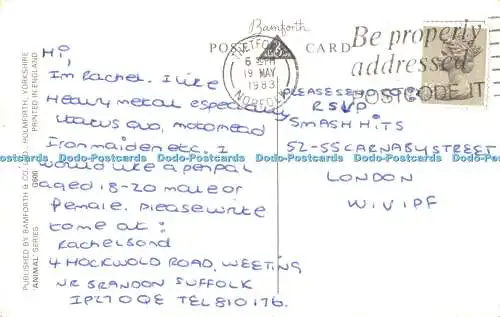 Bamforth
POST CARD
THETFORD
6 PM
19 MAY
1983
NORFOLK
Be properly
addressed
POSTCODE IT
Hi,
Im Rachel. I like
Heavy metal especially
Status Quo, motorhead
Iron maiden etc. I
would like a penpal
aged 18-20 male or
Female. Please write
to me at:
Rachel Bond
4 HOCKWOLD ROAD, WEETING
NR BRANDON SUFFOLK
IP27 0QE TEL 810176.
PLEASE SEND TO:
RSVP
SMASH HITS
52-55 CARNABY STREET
LONDON
W.1V 1PF
PUBLISHED BY BAMFORTH & CO. LTD., HOLMFIRTH, YORKSHIRE
PRINTED IN ENGLAND
'ANIMAL' SERIES
Ddo-Postcards Ddo-Postcards Ddo-Postcards Ddo-Postcards Ddo-Postcards Ddo-Postcards